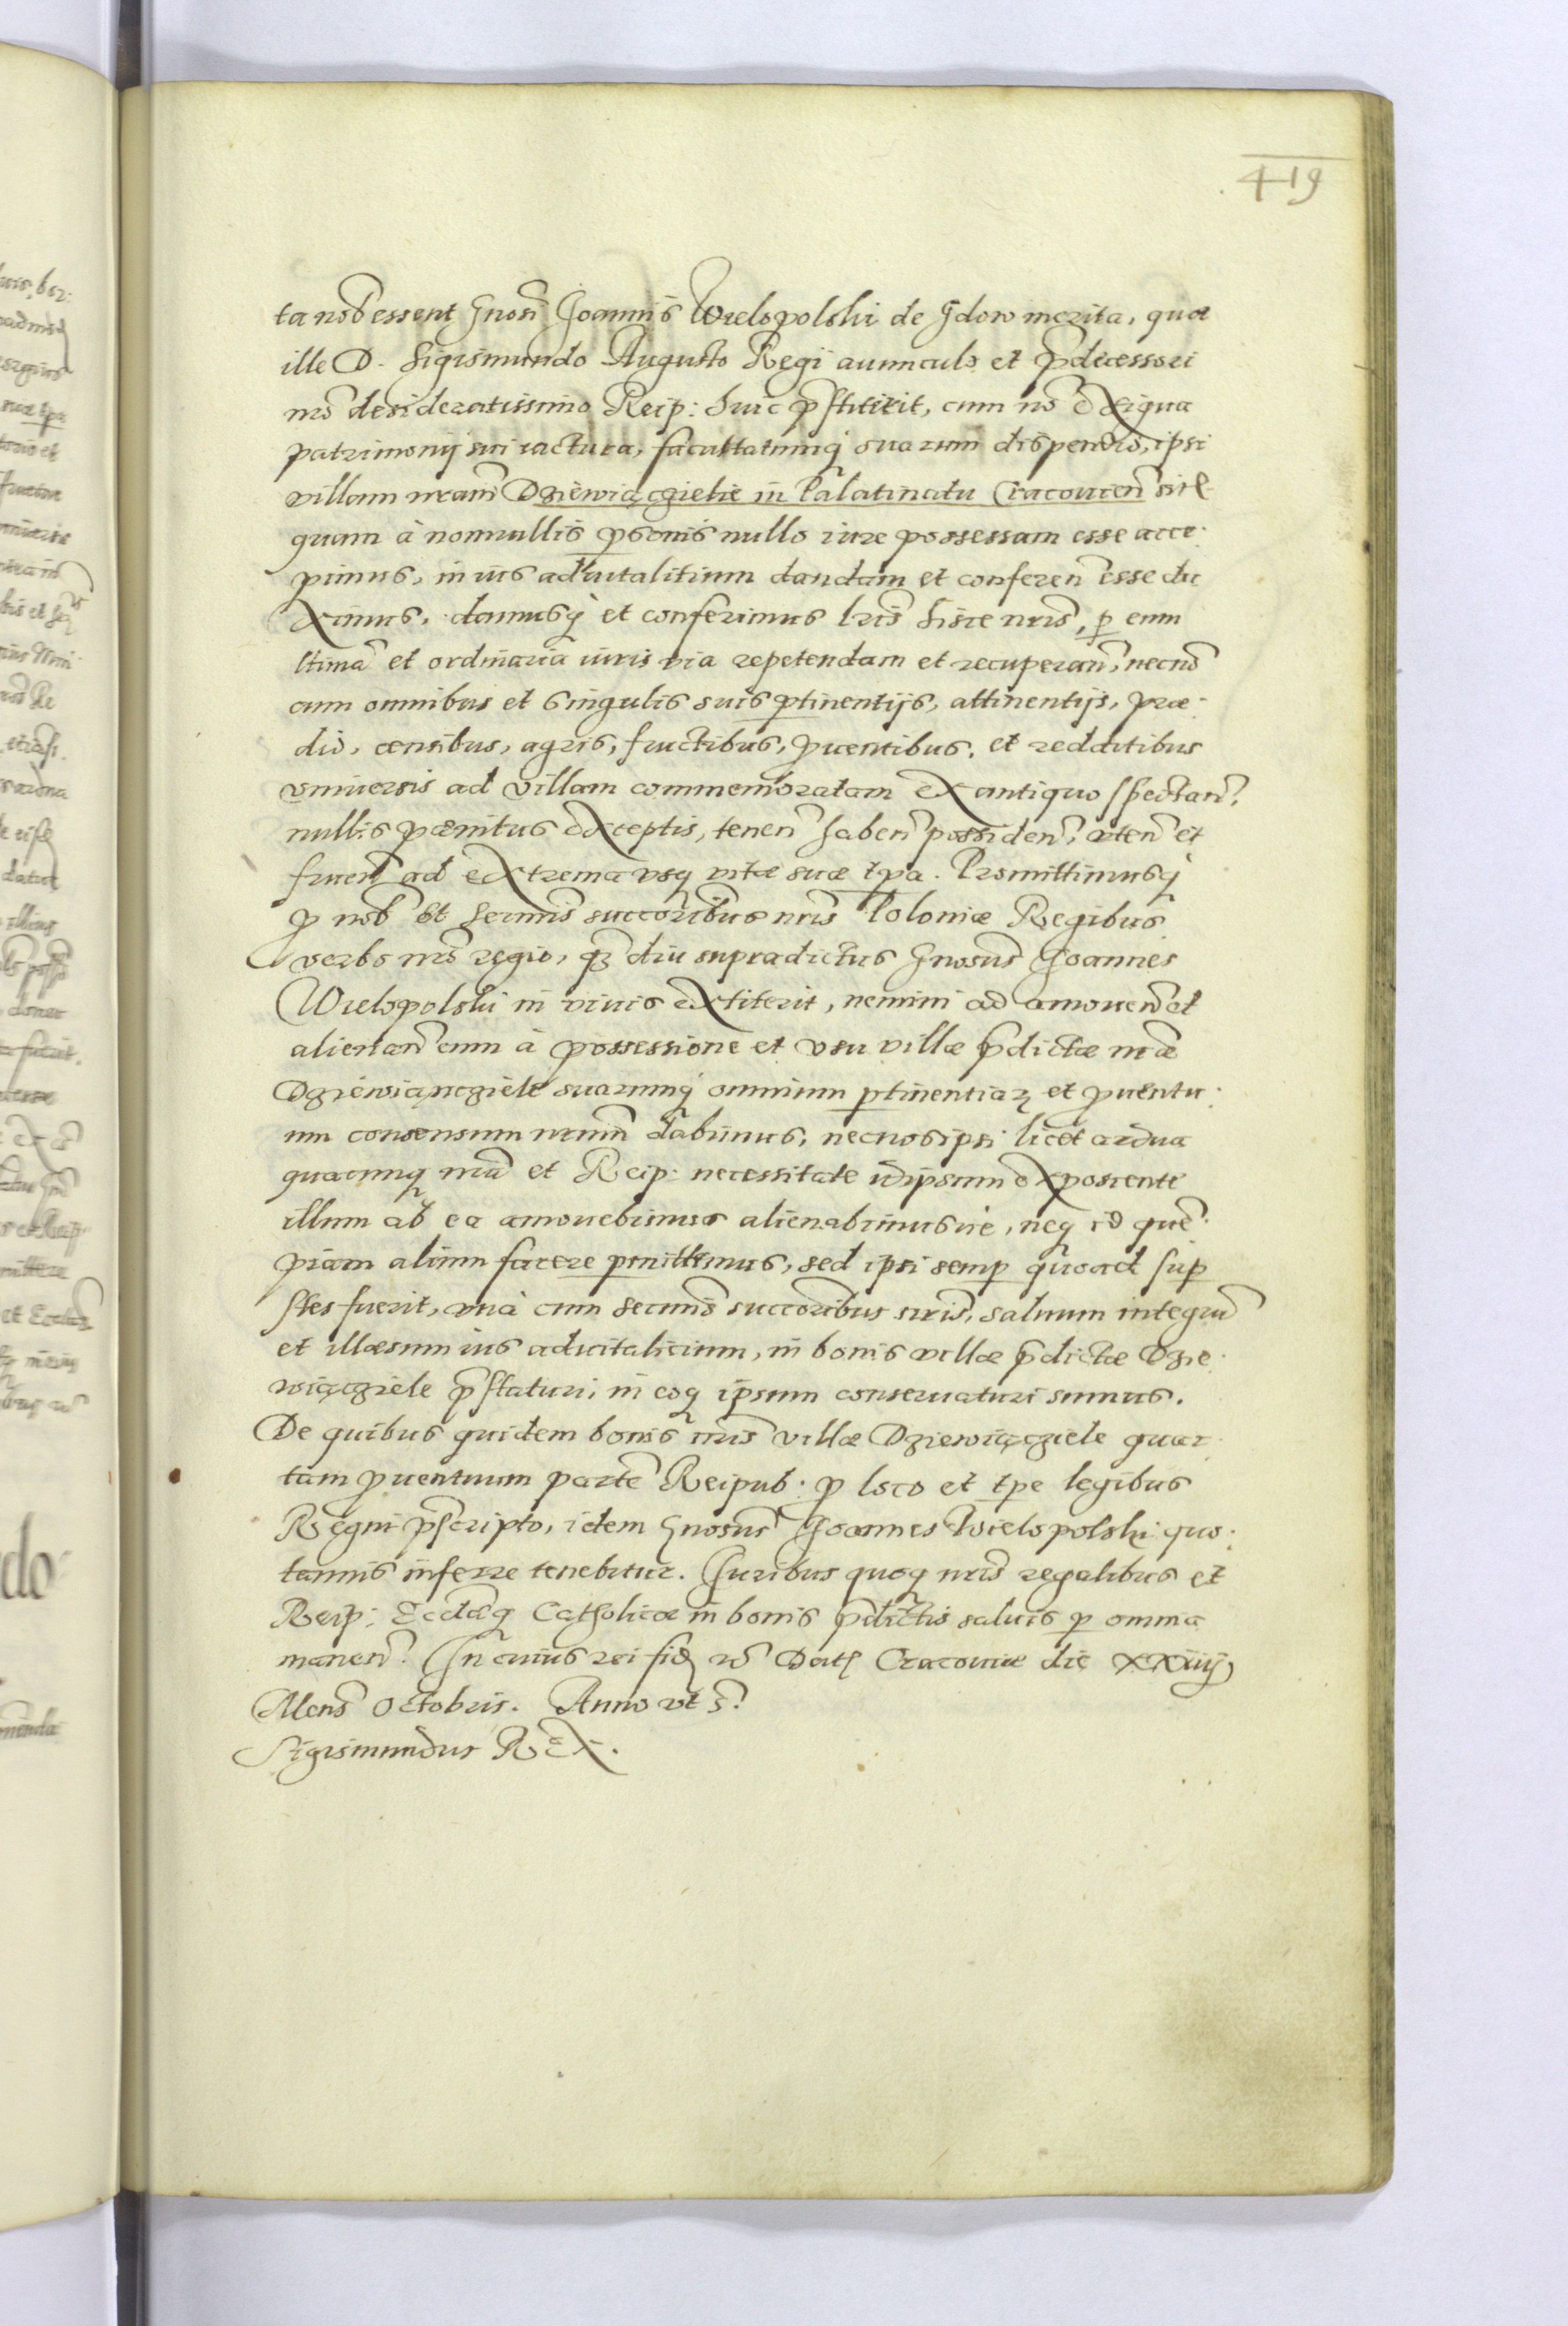 419
ta nob essent Gnosi Joannis Wielopolski de Gdow merita, quae
ille D. Sigismundo Augusto Regi auunculo et pdecessori
nro desideratissimo Reip: huic pstiterit, cum no exigua
patrimonij sui iactura, facultatumq suarum dispendio, ipsi
villam nram Dziewiączielie in Palatinatu Cracouien sit
quam à nonnullis psonis nullo iure possessam esse acce
pimus, in ius aduitalitium dandam et conferen esse du
ximus, damusq et conferimus lris hisce nris, p eum
ltima et ordinaria iuris via repetendam et recuperan, necno
cum omnibus et singulis suis ptinentijs, attinentijs, prae
dio, censibus, agris, fructibus, puentibus, et redditibus
vniuersis ad villam commemoratam ex antiquo spectan,
nullis paenitus exceptis, tenen haben possiden, vten et
fruen ad extrema vsq vitae suae tpa. Promittimusq
p nob et sermis succoribus nris Poloniae Regibus
verbo nro regio, q diu supradictus Gnosus Joannes
Wielopolski in viuis extiterit, nemini ad amouend et
alienand eum à possessione et vsu villae pdictae nrae
Dziewiąnczielé suarumq omnium ptinentiar et puentu
um consensum nrum dabimus, nec nos ipsi licet ardua
quacunq nra et Reip: necessitate idipsum exposcente
illum ab ea amouebimus alienabimusue, neq id que
piam alium facere pmittemus, sed ipsi semp quoad sup
stes fuerit, vnà cum sermis succoribus nris, saluum integru
et illaesum ius aduitalicium, in bonis villae pdictae Dzie
wiączielé pstaturi, in eoq ipsum conseruaturi sumus.
De quibus quidem bonis nris villae Dziewiączielé quar
tam puentuum parte Reipub. p loco et tpe legibus
Regni pscripto, idem Gnosus Joannes Wielopolski quo
tannis inferre tenebitur. Juribus quoq nris regalibus et
Reip: Ecclaeq Catholicae in bonis pdictis saluis p omnia
manen. In cuius rei fid Dat Cracouiae die xxiiij
Mens Octobris. Anno vt s.
Sigismundus Rex.